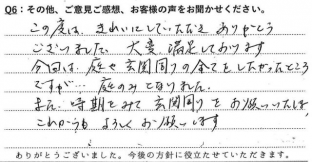 Q6：その他、ご意見ご感想、お客様の声をお聞かせください。
この度は、きれいにしていただき ありがとう
ございました。大変 満足しております
今回は、庭や玄関周りの全てをしたかったところ
ですが… 庭のみとなりました。
また、時期をみて 玄関周りを お願いいたします
これからも よろしくお願いします
ありがとうございました。今後の方針に役立たせていただきます。